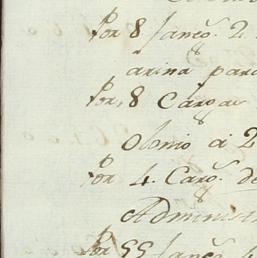 Por 8 Janço. 2
arina para
Por, 8 Cargas
olonio a 2
Por 4. Carg.s de
Administr
Por 55 Janço.